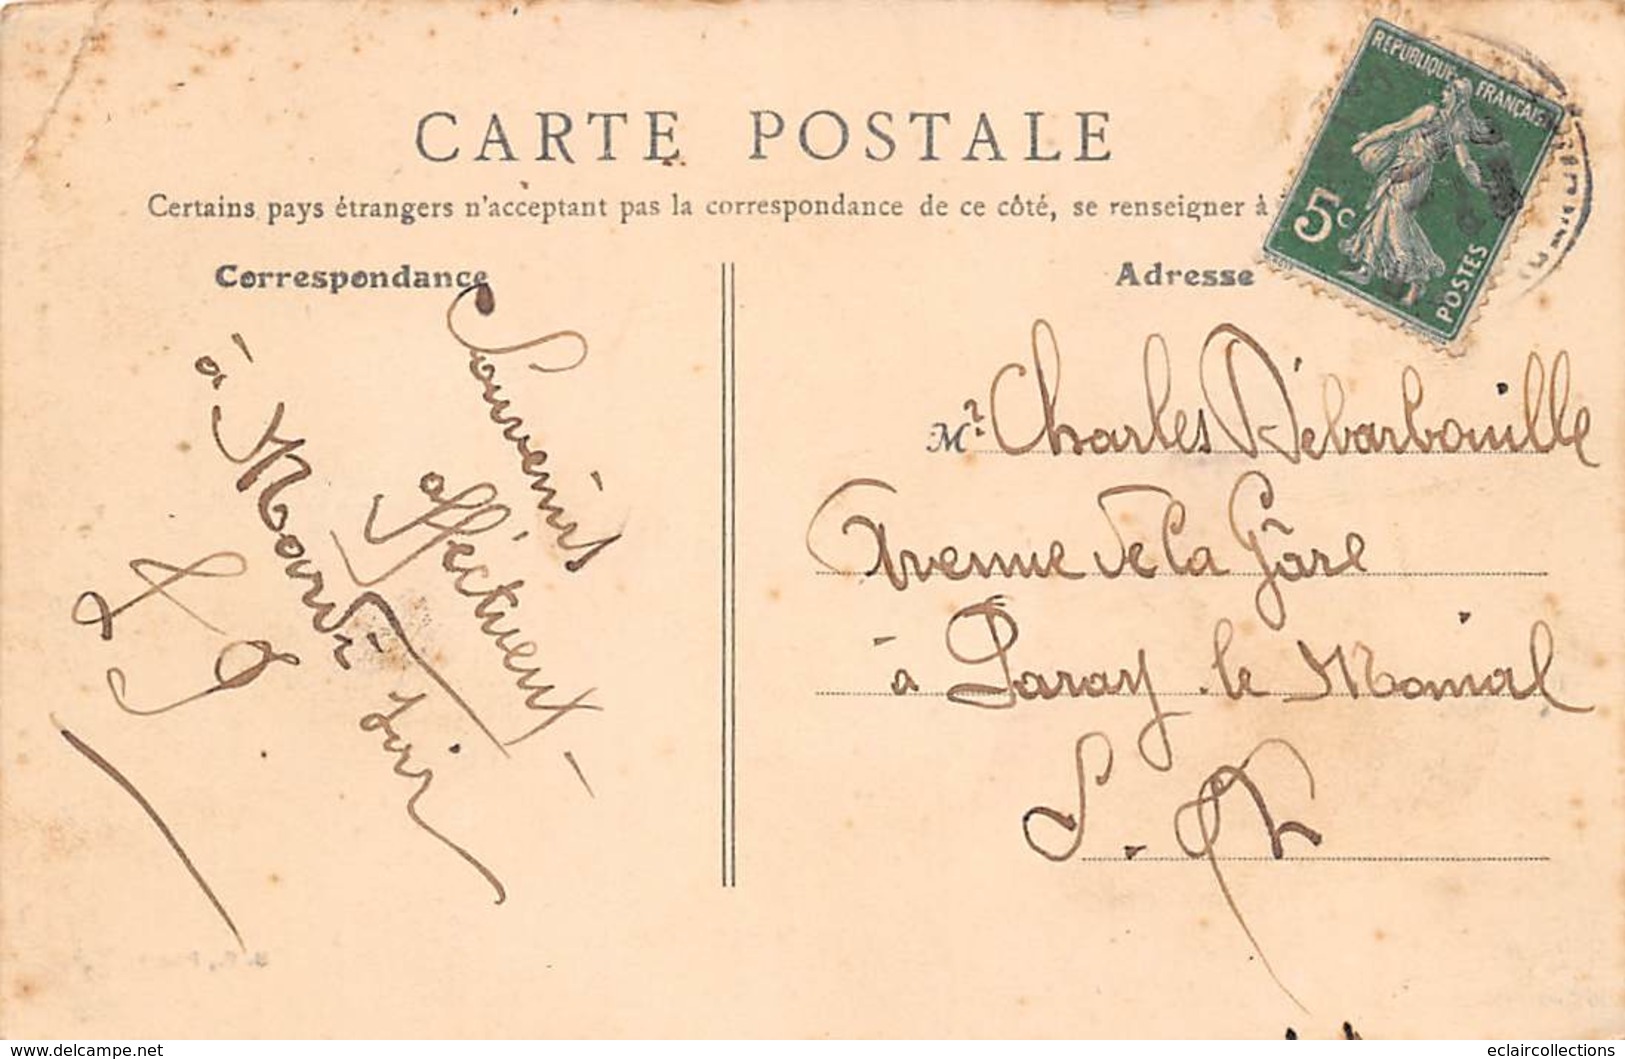 CARTE POSTALE
Certains pays étrangers n'acceptant pas la correspondance de ce côté, se renseigner à
Correspondance
Souvenirs
affectueux
à Mardi Soir
Adresse
Mr. Charles Débarbouille
Avenue de la Gâre
à Paray le Monial
S. &
REPUBLIQUE FRANÇAISE
5c
POSTES
www.delcampe.net
eclaircollections